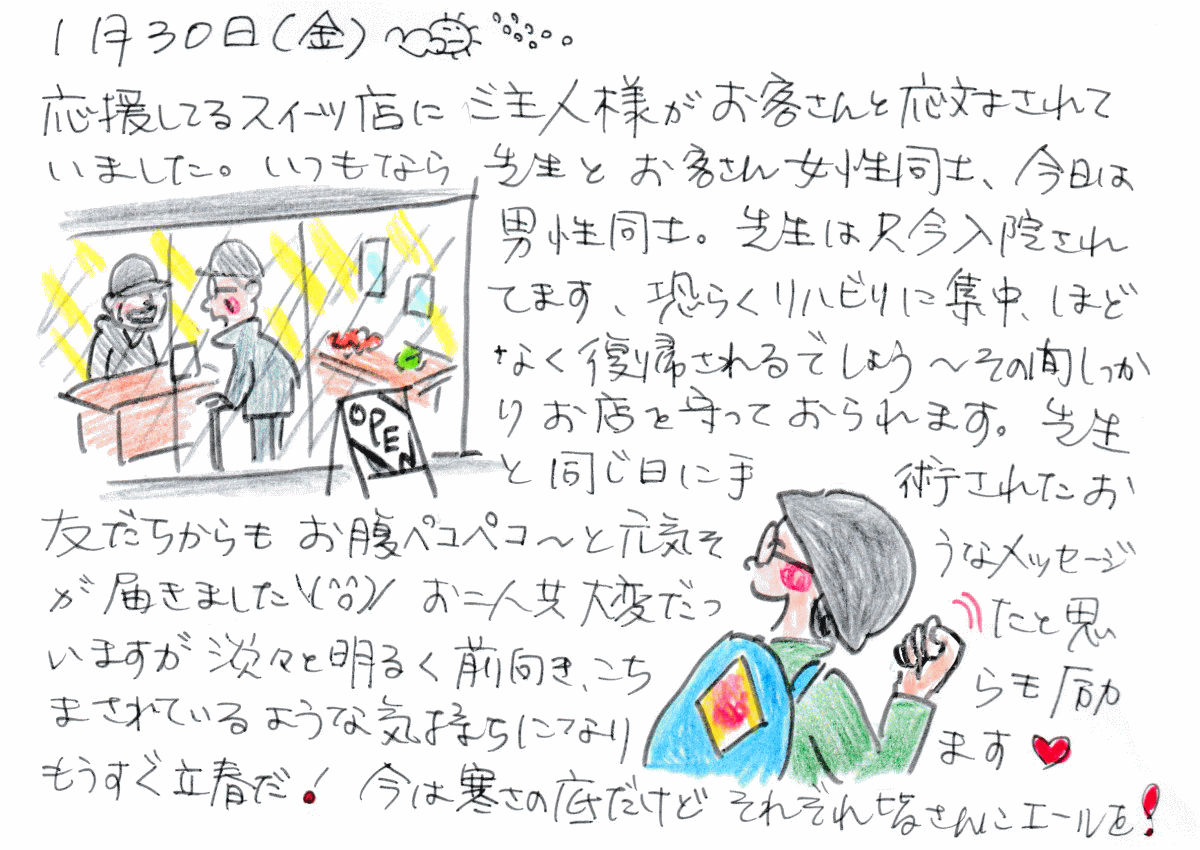 1月30日(金)
応援してるスイーツ店に ご主人様がお客さんと応対されて
いました。いつもなら 先生と お客さん女性同士、今日は
男性同士。先生は只今入院され
てます、恐らくリハビリに集中、ほど
なく復帰されるでしょう〜その間しっか
りお店を守っておられます。先生
と同じ日に手術されたお
友だちからも お腹ペコペコ〜と元気そうなメッセージ
が届きました\(^o^)/ お二人共大変だったと思
いますが 淡々と明るく前向き、こちらも励
まされているような気持ちになります
もうすぐ立春だ! 今は寒さの底だけど それぞれ皆さんにエールを!
OPEN